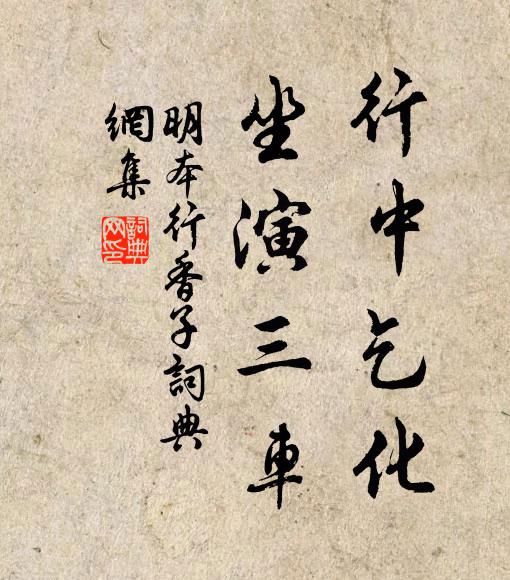 行中乞化
坐演三車
明本行香子詞典
網集
詞典
网印